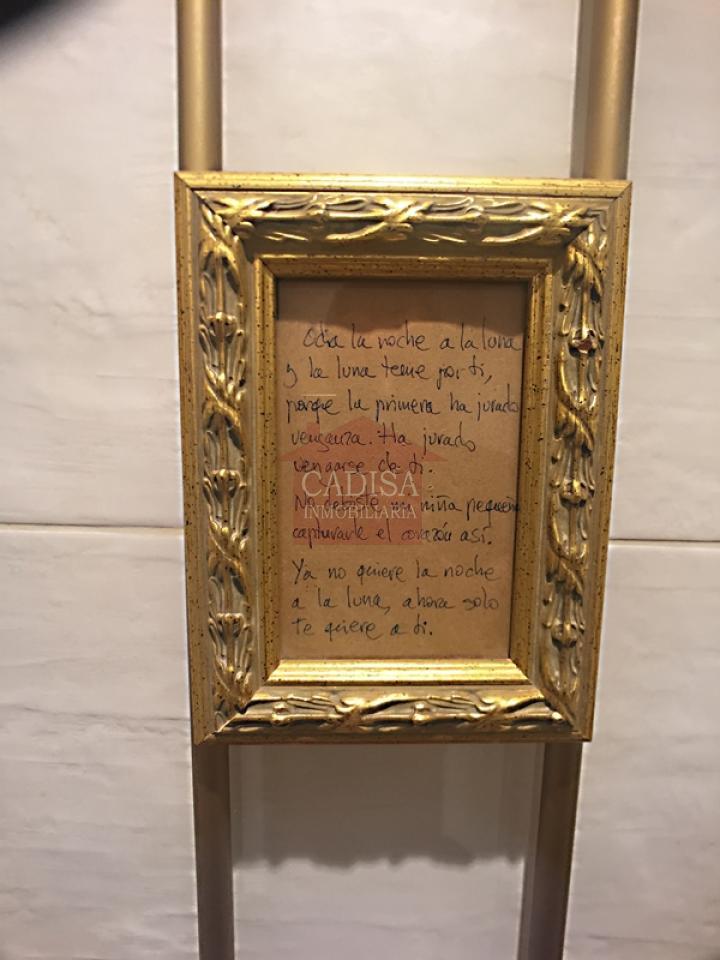 Odia la noche a la luna
y la luna teme por ti,
porque la primera ha jurado
venganza. Ha jurado
vengarse de ti.
No debiste mi niña pequeña
CADISA
INMOBILIARIA
capturarle el corazón así.
Ya no quiere la noche
a la luna, ahora solo
te quiere a ti.